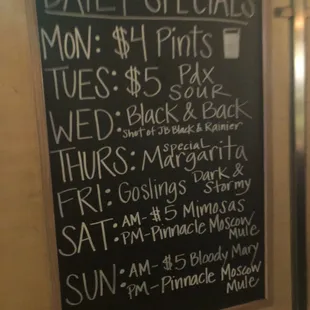 DAILY SPECIALS
MON: $4 Pints
TUES: $5 Pdx Sour
WED: Black & Back
Shot of JB Black & Rainier
THURS: Special Margarita
FRI: Goslings Dark & Stormy
SAT: AM- $5 Mimosas
PM- Pinnacle Moscow Mule
SUN: AM- $5 Bloody Mary
PM- Pinnacle Moscow Mule